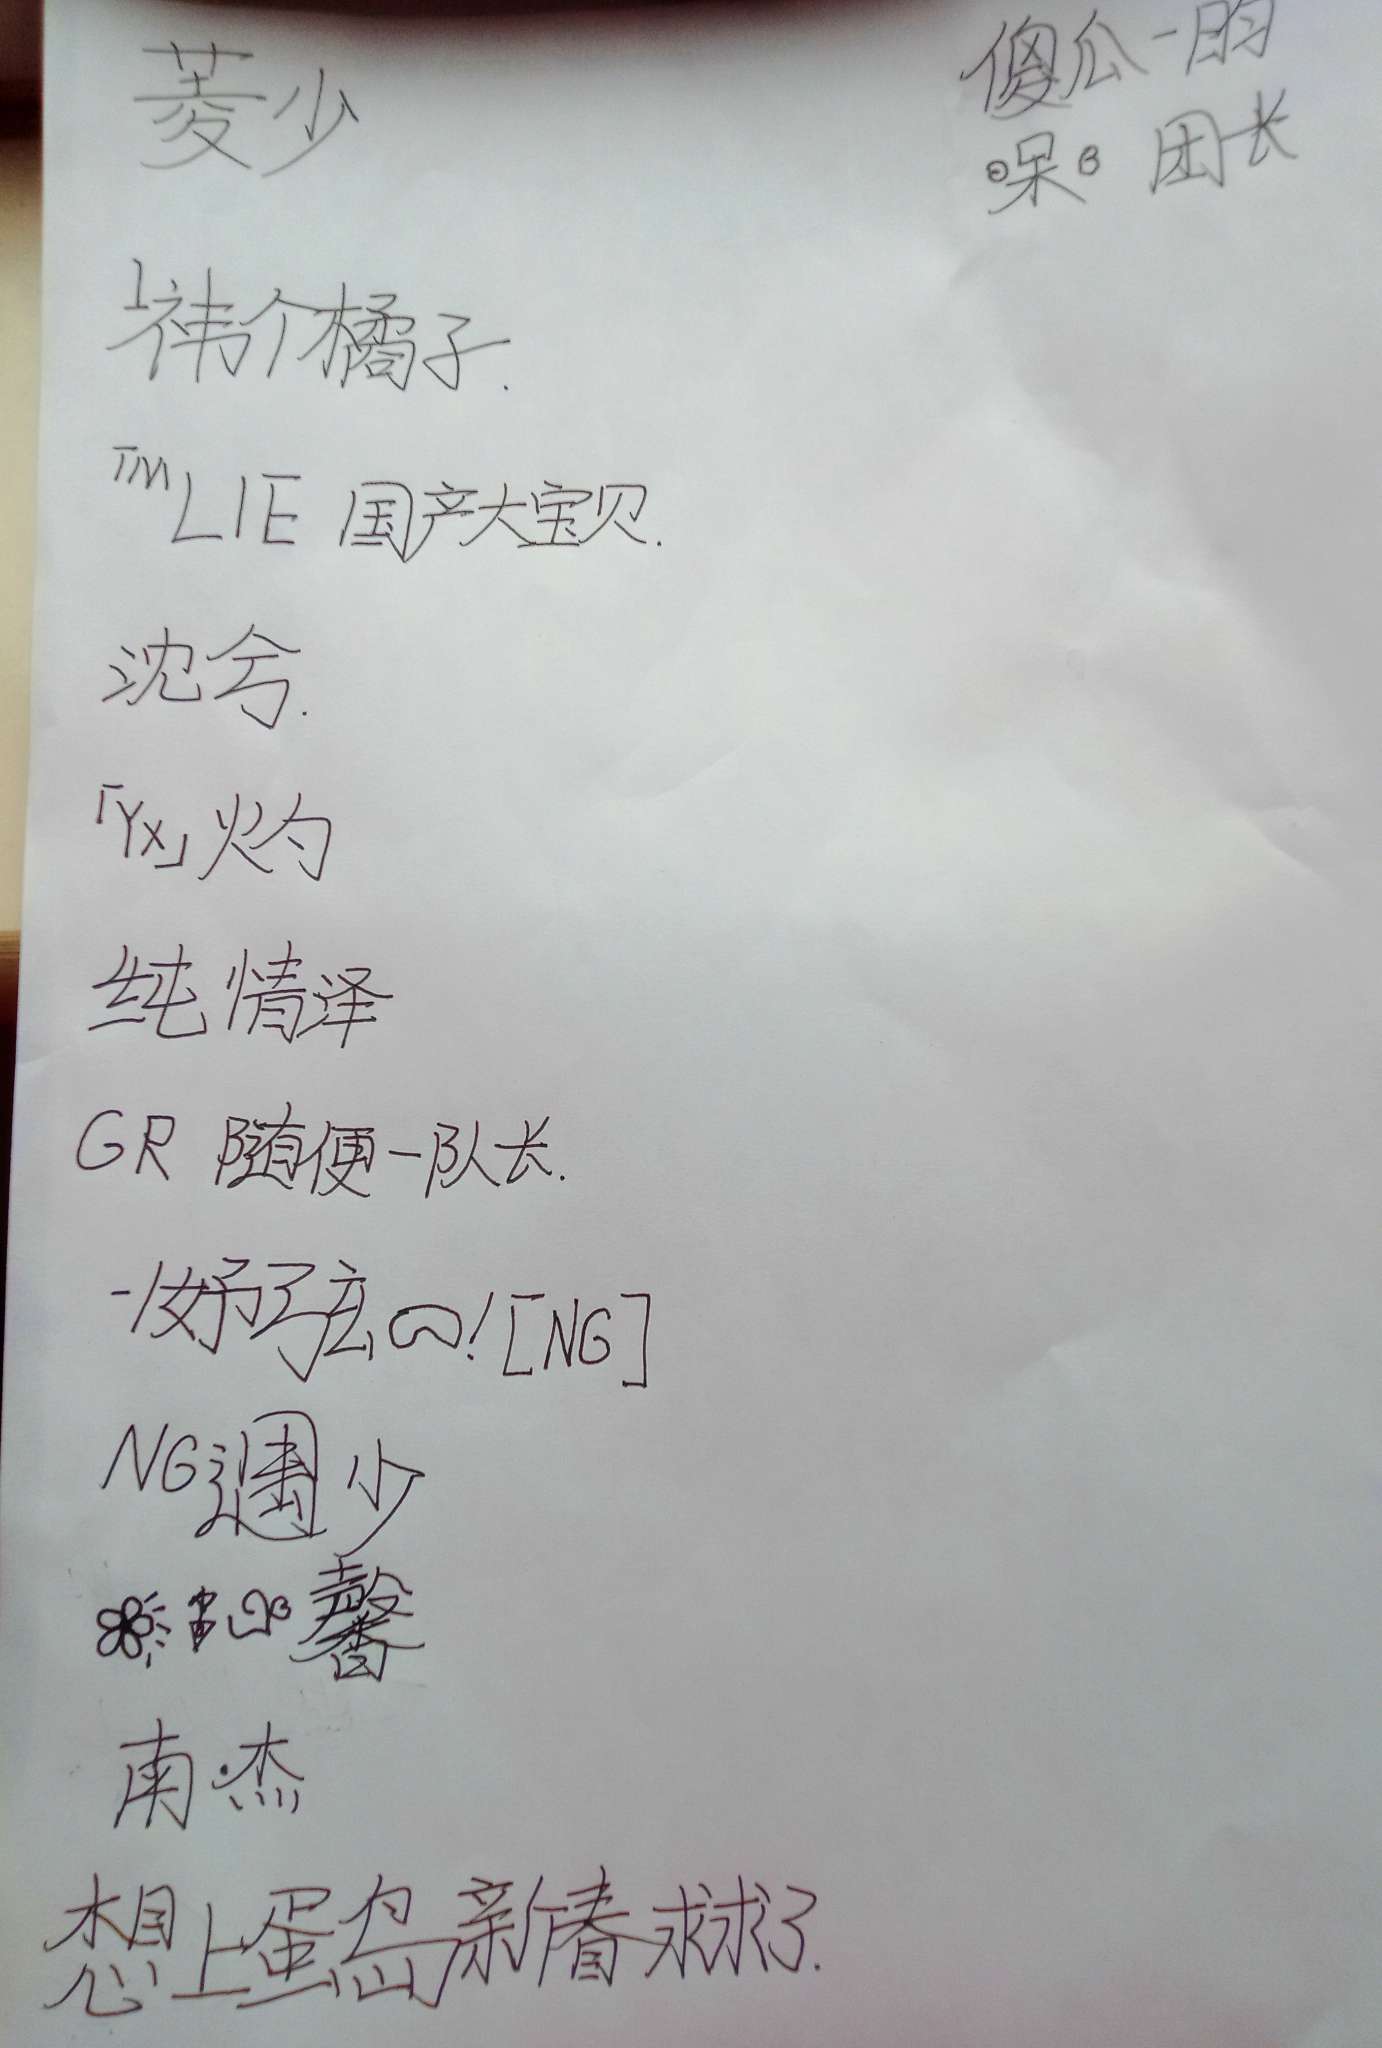 菱少
傻瓜一的
呆 团长
1祎个橘子.
™LIE 国产大宝贝.
沈兮.
「Yx」灼
纯情泽
GR 随便一队长.
![NG]
NG 少
馨
南·杰
想上蛋岛新春求求了.